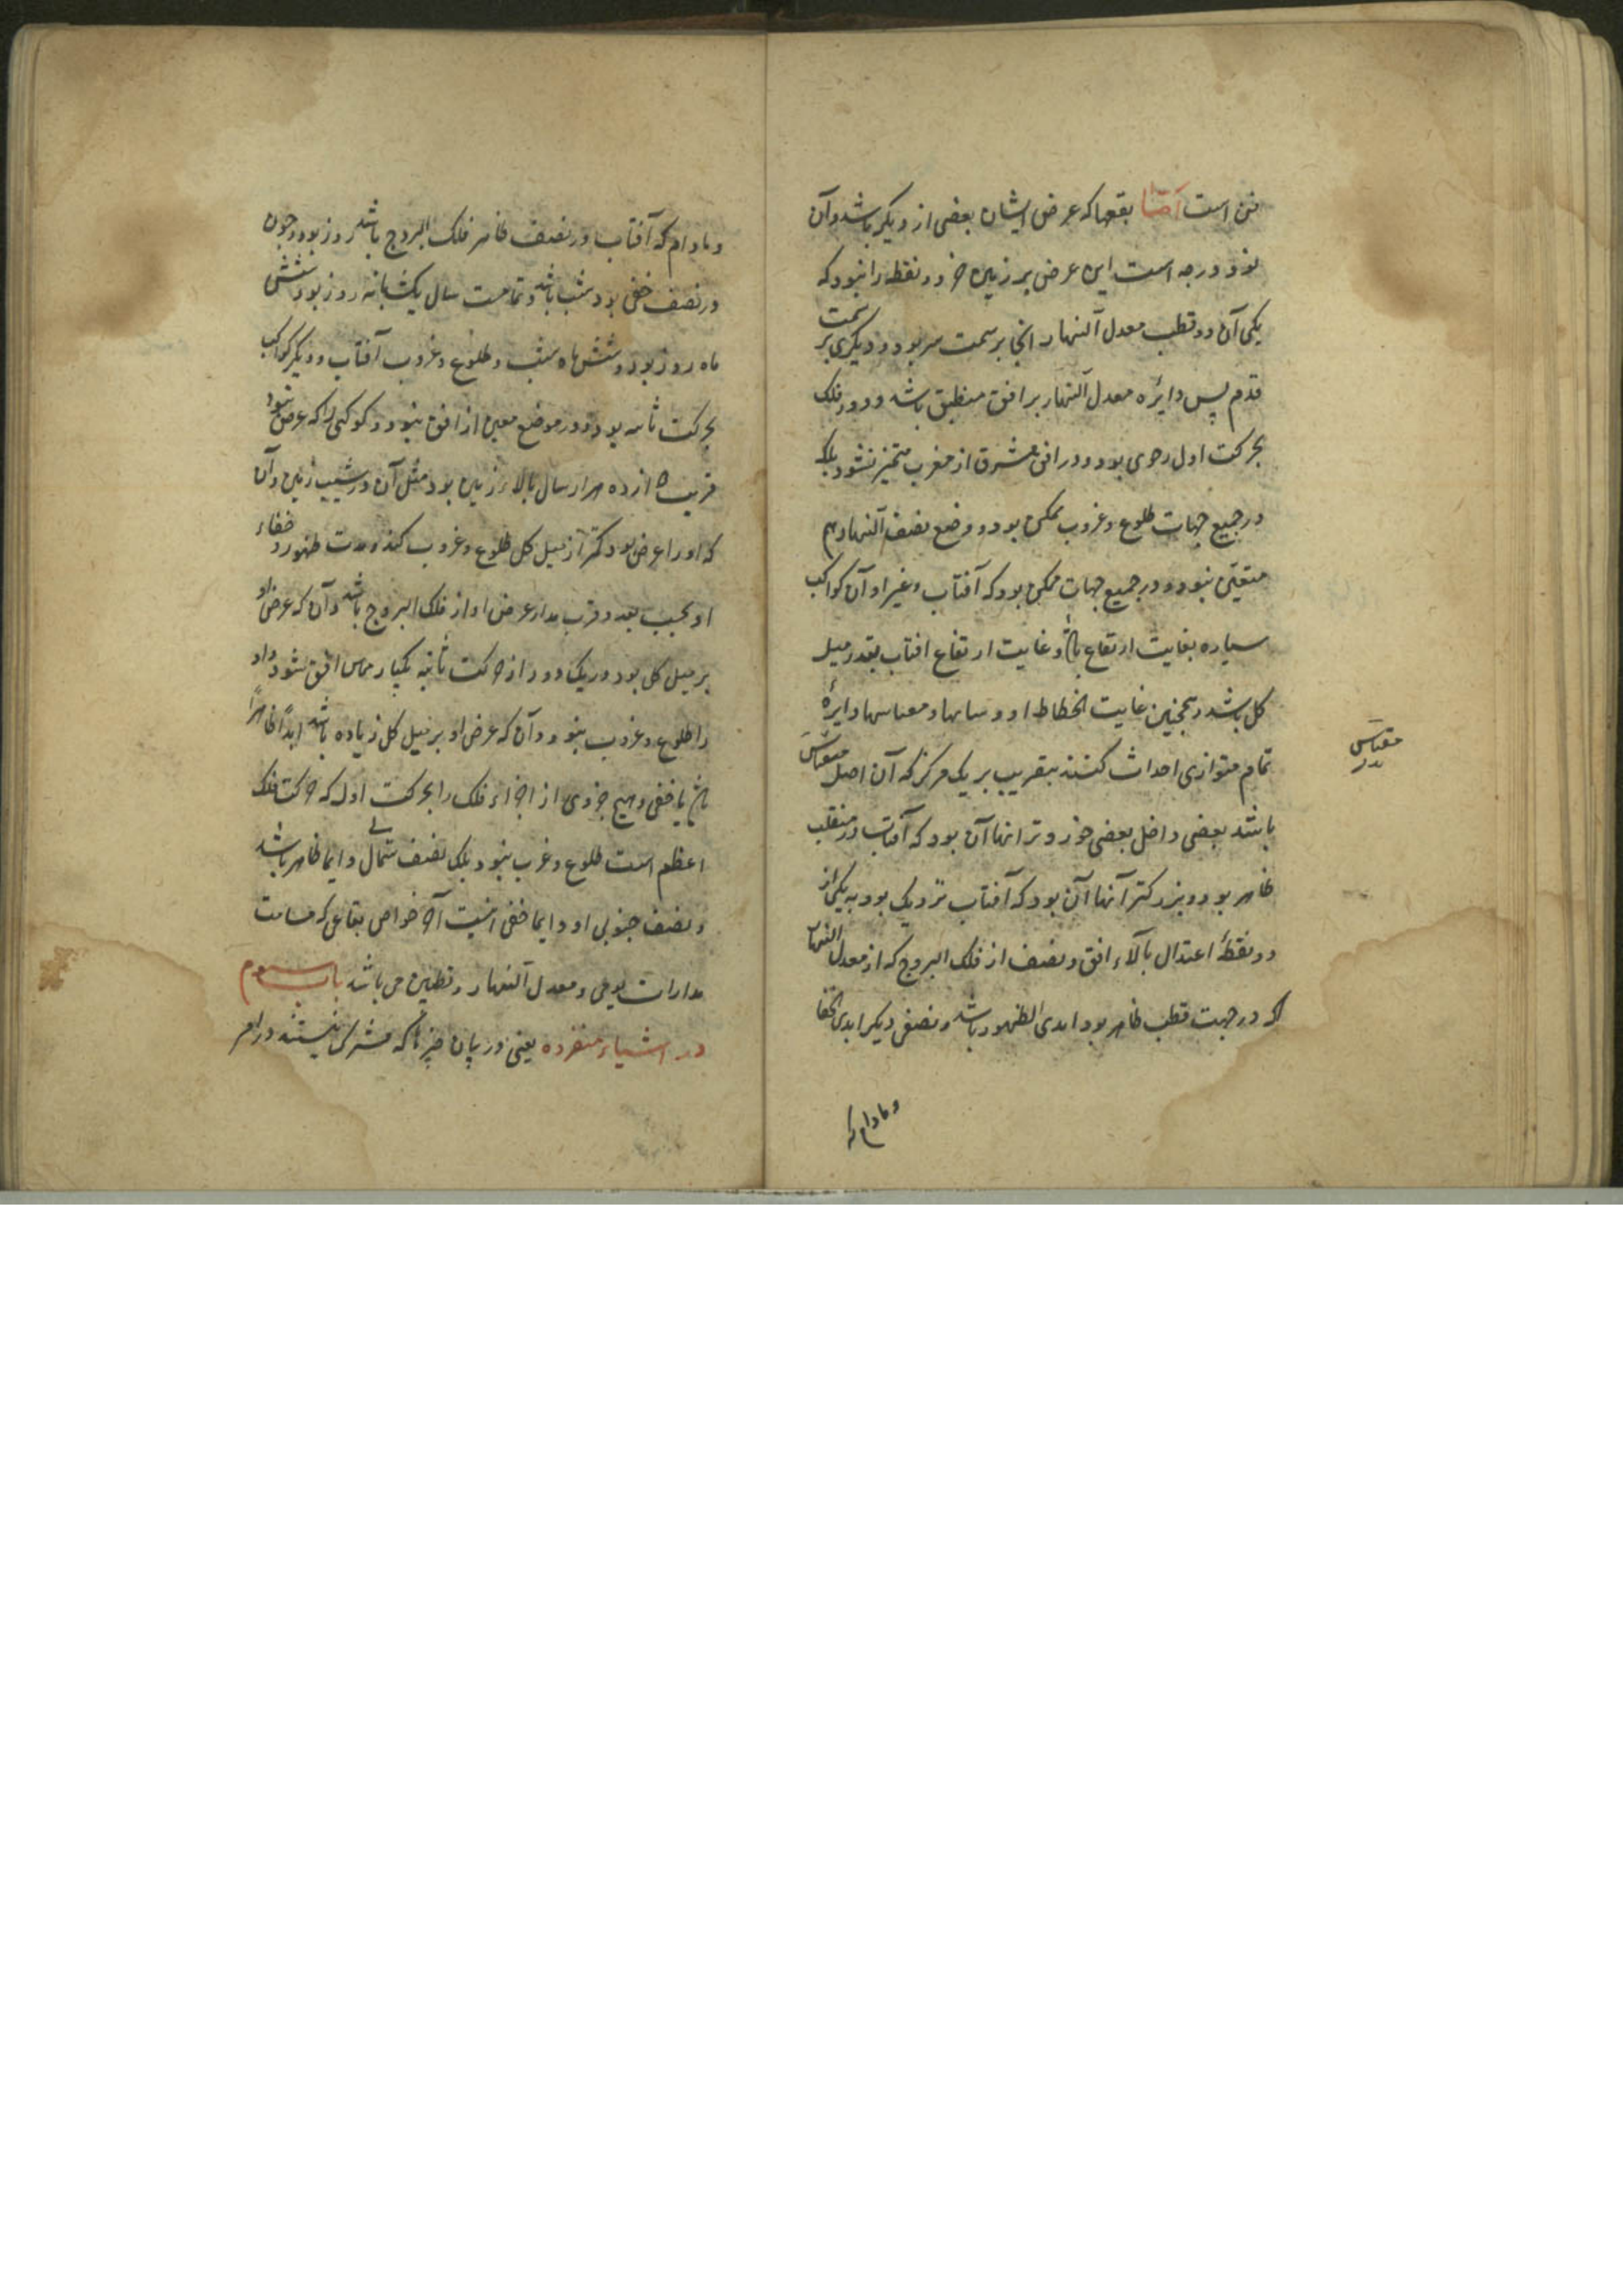 است اما بقعها که عرض ایشان بعضی از دیکر باشد و آن
نود درجه است این عرض بر زمین جز دو نقطه را نبود که
یکی آن دو قطب معدل النهار انجا بر سمت سر بود و دیکری بر سمت
قدم پس دایره معدل النهار بر افق منطبق باشد و دور فلک
بحرکت اول رحوی بود و در افق مشرق از مغرب متمیز نشود بلکه
در جمیع جهات طلوع و غروب ممکن بود و وضع نصف النهار هم
متعین نبود و در جمیع جهات ممکن بود که آفتاب و غیر او آن کواکب
سیاره بغایت ارتفاع باشد و غایت ارتفاع افتاب بقدر میل
کل باشد و همچنین غایت انحطاط او و سایها و مقیاسها دایرهٔ
تمام متوازی احداث کنند بتقریب بر یک مرکز که آن اصل مقیاس
مقیاس
باشند بعضی داخل بعضی خوردترانها آن بود که آفتاب در منقلب
ظاهر بود و بزرکتر آنها آن بود که آفتاب نزدیک بود به یکی از
دو نقطهٔ اعتدال بالاء افق و نصف از فلک البروج که از معدل النهار
که در جهت قطب ظاهر بود ابدی الظهور باشد و نصف دیکر ابدی الخفا
و مادام که
و مادام که آفتاب در نصف ظاهر فلک البروج باشد روز بود و چون
در نصف خفی بود شب باشد و تمامت سال یک شبانه روز بود شش
ماه روز بود و شش ماه شب و طلوع و غروب آفتاب و دیکر کواکب
بحرکت ثانیه بود و در موضع معین از افق نبود و کوکبی را که عرض نبود
قریب دوازده هزار سال بالاء زمین بود مثل آن در شیب زمین و آن
که او را عرض بود کمتر از میل کل طلوع و غروب کند و مدت ظهور و خفاء
او بحسب بعد و قرب مدار عرض او از فلک البروج باشد و آن که عرض او
بر میل کل بود در یک دور از حرکت ثانیه یکبار مماس افق شود و او
را طلوع و غروب نبود و آن که عرض او بر میل کل زیاده باشد ابداً ظاهراً
باشد یا خفی و هیچ جزوی از اجزاء فلک را بحرکت اول که حرکت فلک
اعظم است طلوع و غرب نبود بلکه نصف شمالی دایما ظاهر باشد
و نصف جنوبی او دایما خفی اینست آن خواص بقاعی که مسامت
مدارات یومی و معدل النهار و قطبین می باشد باب سوم
در اشیاء منفرده یعنی در بیان چیزها که مشترک نیستند در امر